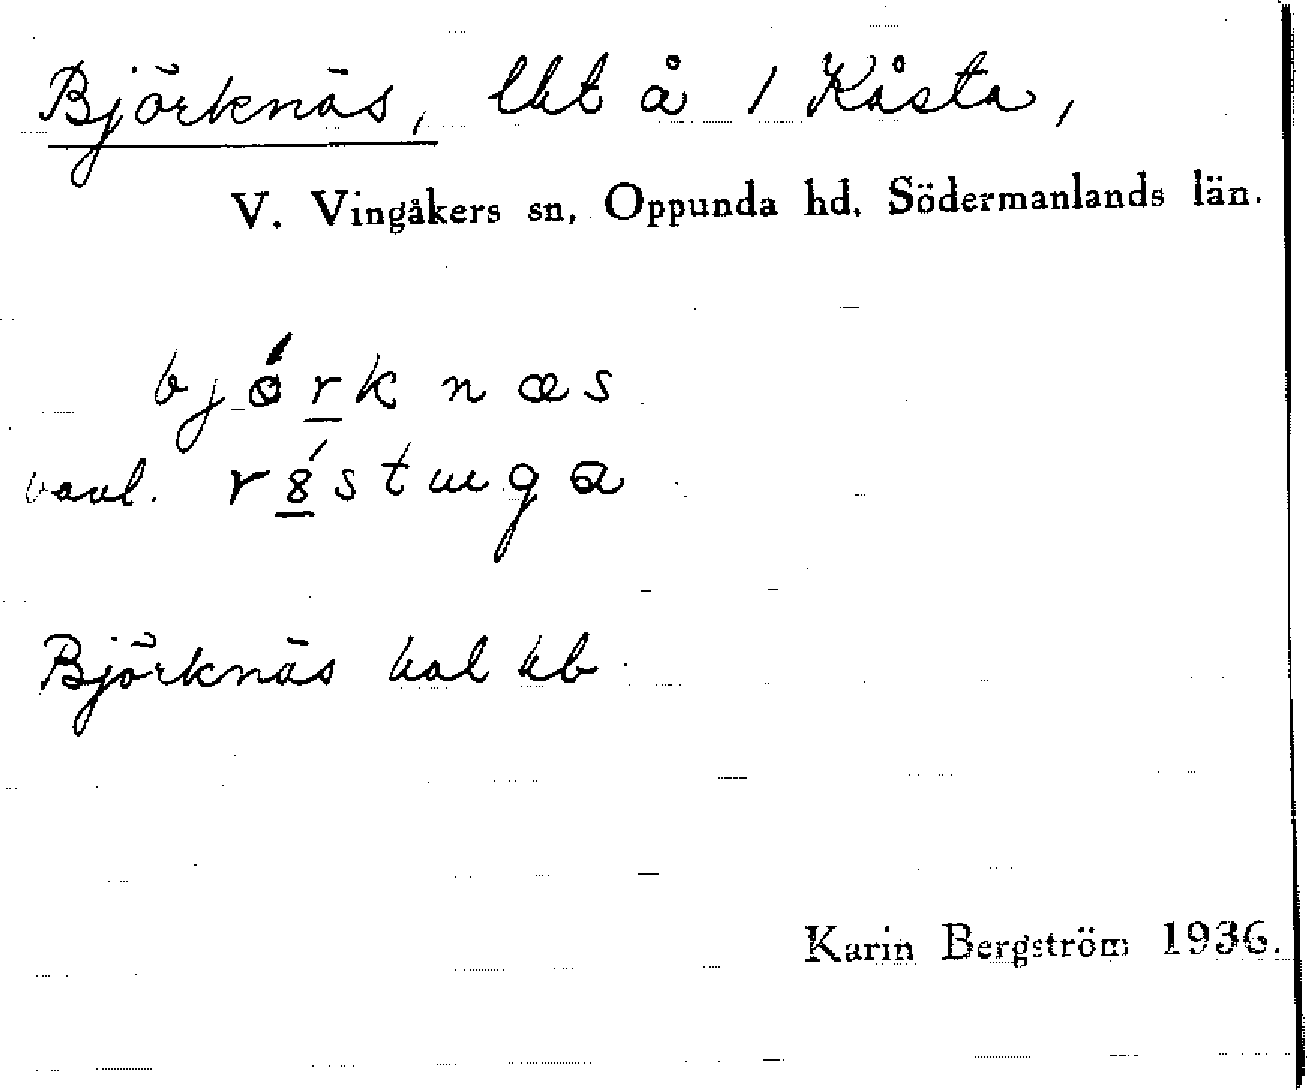 Björknäs, lht å 1 Kåsta,
V. Vingåkers sn, Oppunda hd, Södermanlands län.
bjørknæs
vanl.
Björknäs hal hb
Karin Bergström 1936.